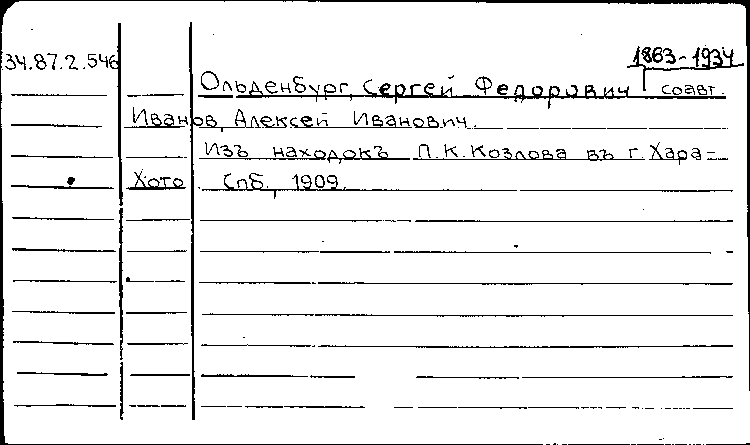 1863-1934
34.87.2.546
Ольденбург, Сергей Федорович соавт.
Иванов, Алексей Иванович.
Изъ находокъ П.К.Козлова въ г. Хара=
Хото. Спб., 1909.